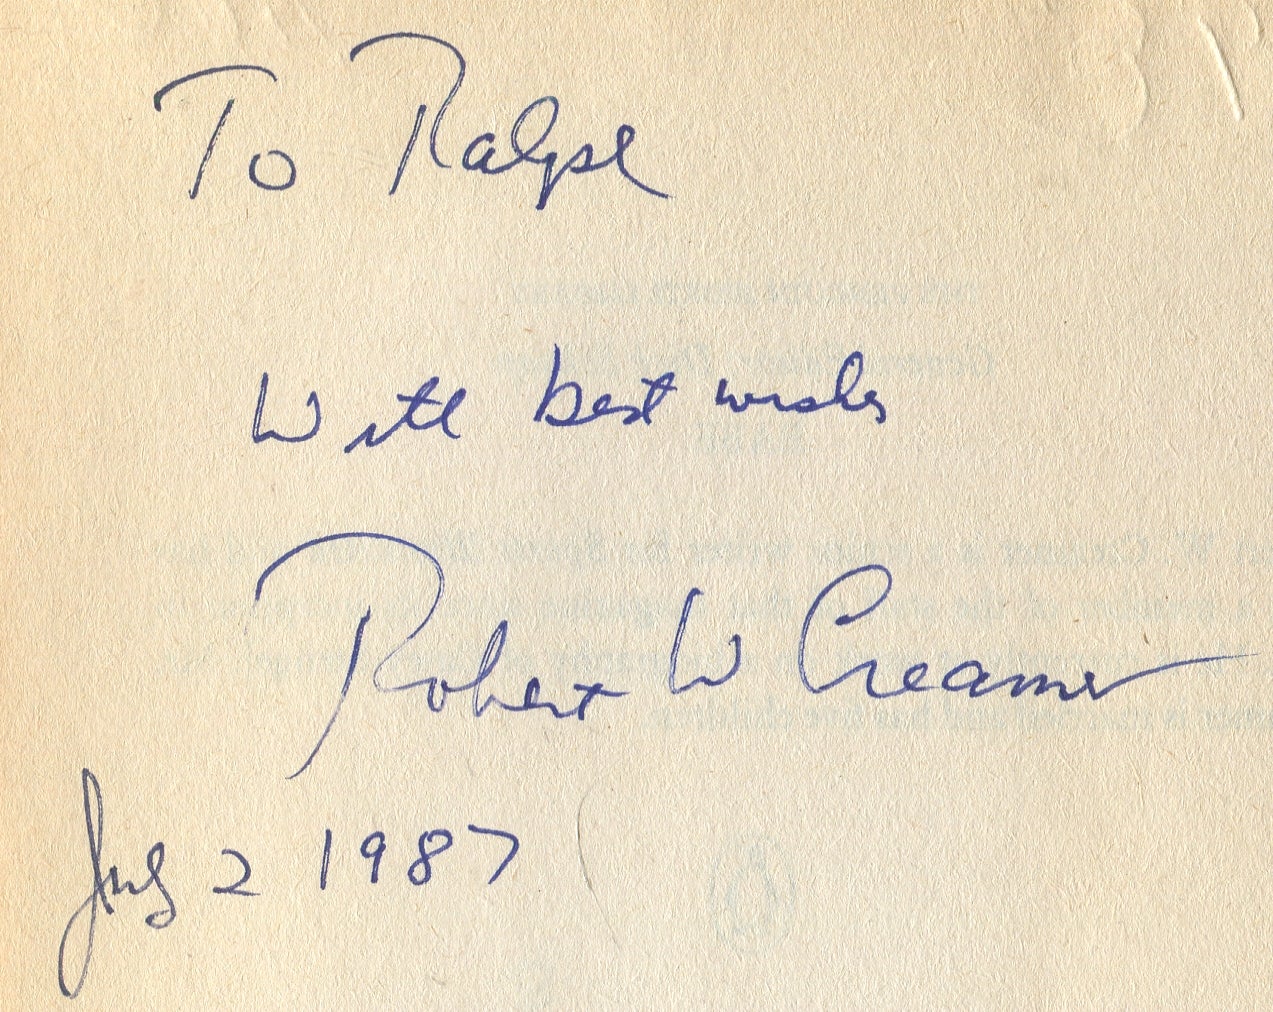 To Ralph
With best wishes
Robert W Creamer
July 2 1987